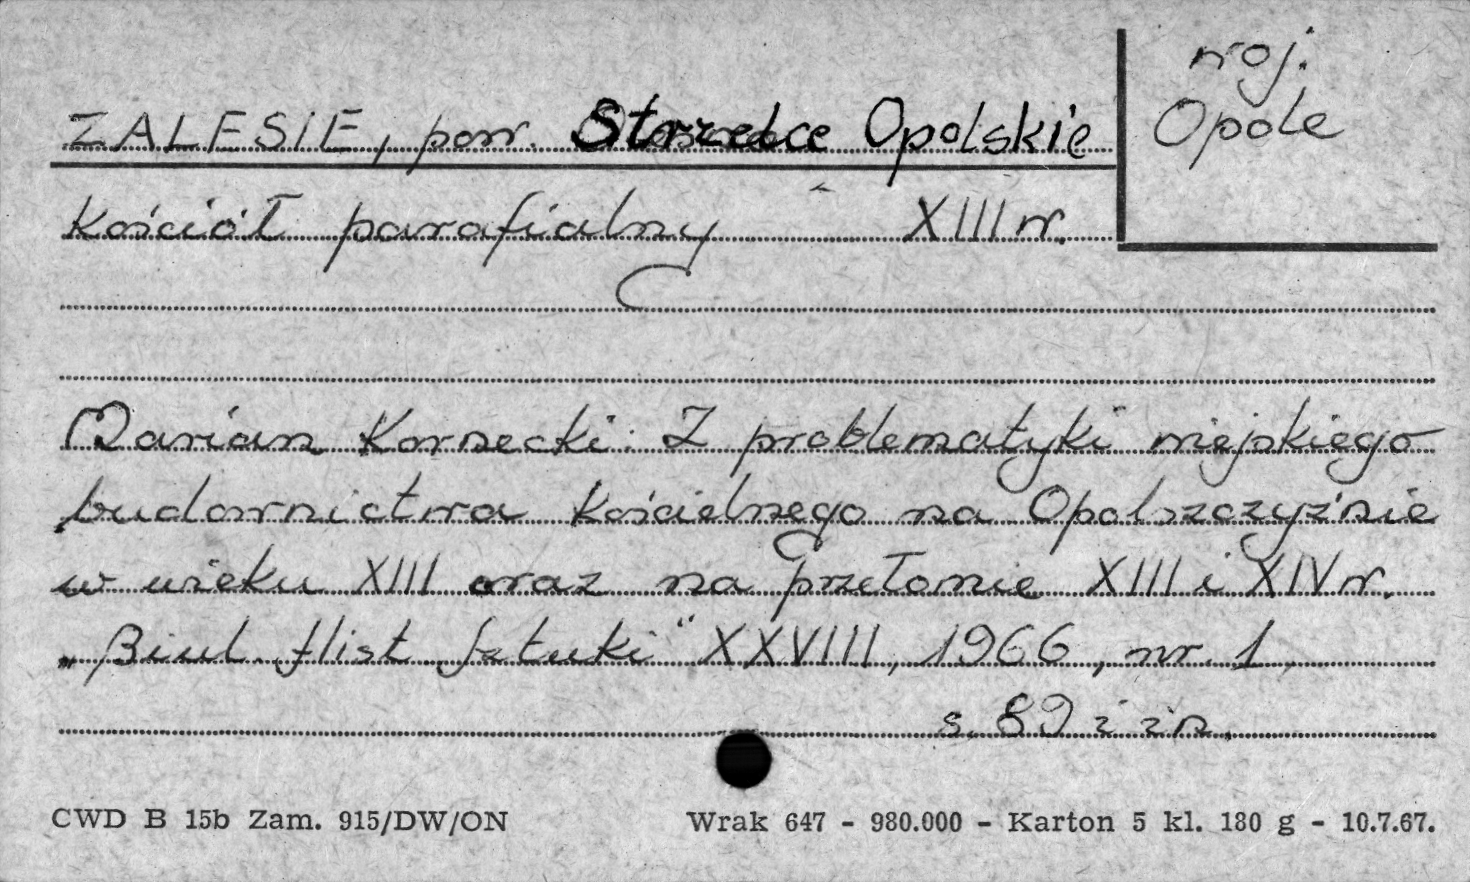 woj.
Opole
ZALESIE, pow. Strzelce Opolskie
Kościół parafialny XIII w.
Marian Kornecki: Z problematyki miejskiego
budownictwa kościelnego na Opolszczyźnie
w wieku XIII oraz na przełomie XIII i XIV w.
„Biul. Hist. Sztuki" XXVIII, 1966, nr. 1,
s. 89 i in.
CWD B 15b Zam. 915/DW/ON Wrak 647 - 980.000 - Karton 5 kl. 180 g - 10.7.67.